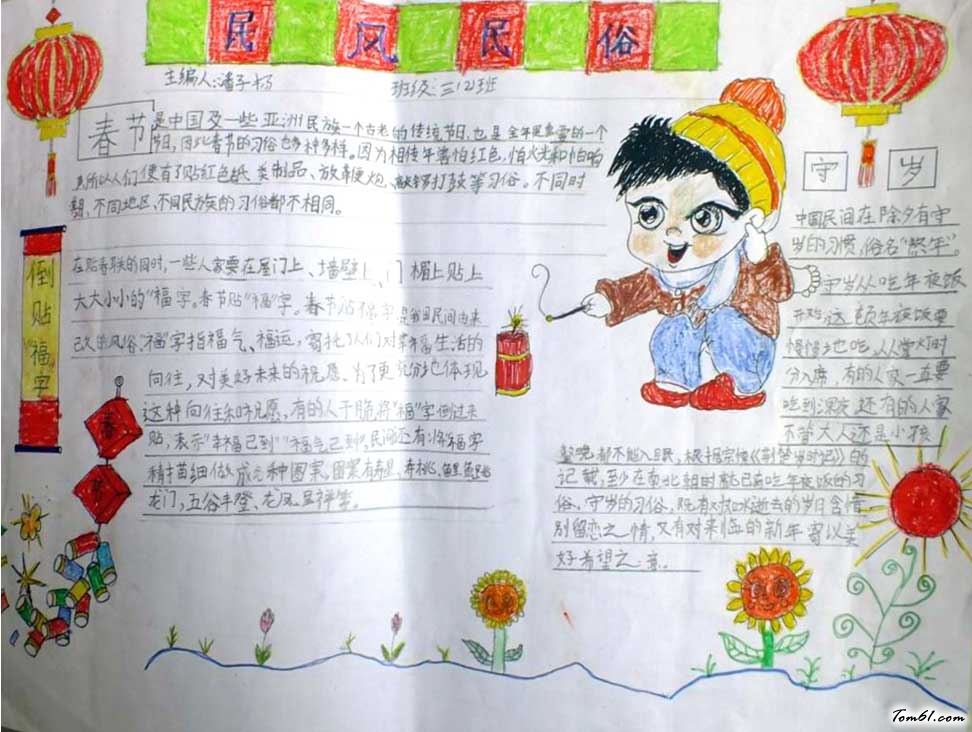 民风民俗
主编人:潘子杨 班级:三(2)班
春节是中国及一些亚洲民族一个古老的传统节日,也是全年最重要的一个
节日,因此春节的习俗也多种多样。因为相传年害怕红色,怕火光和怕响
声,所以人们便有了贴红色纸类制品、放鞭炮、敲锣打鼓等习俗。不同时
期、不同地区、不同民族的习俗都不相同。
倒贴“福”字
在贴春联的同时,一些人家要在屋门上、墙壁上、门楣上贴上
大大小小的“福”字。春节贴“福”字。春节贴福字,是我国民间由来
已久的风俗。“福”字指福气、福运,寄托了人们对幸福生活的
向往,对美好未来的祝愿。为了更充分地体现
这种向往和祝愿,有的人干脆将“福”字倒过来
贴,表示“幸福已到”“福气已到”。民间还有将“福”字
精描细做成各种图案,图案有寿星、寿桃、鲤鱼跳
龙门、五谷丰登、龙凤呈祥等。
春
节
守岁
中国民间在除夕有守
岁的习惯,俗名“熬年”。
守岁从吃年夜饭
开始,这顿年夜饭要
慢慢地吃,从掌灯时
分入席,有的人家一直要
吃到深夜。还有的人家
不管大人还是小孩
整晚都不能入眠,根据宗懔《荆楚岁时记》的
记载,至少在南北朝时就已有吃年夜饭的习
俗。守岁的习俗,既有对如水逝去的岁月含惜
别留恋之情,又有对来临的新年寄以美
好希望之意。
Tom61.com